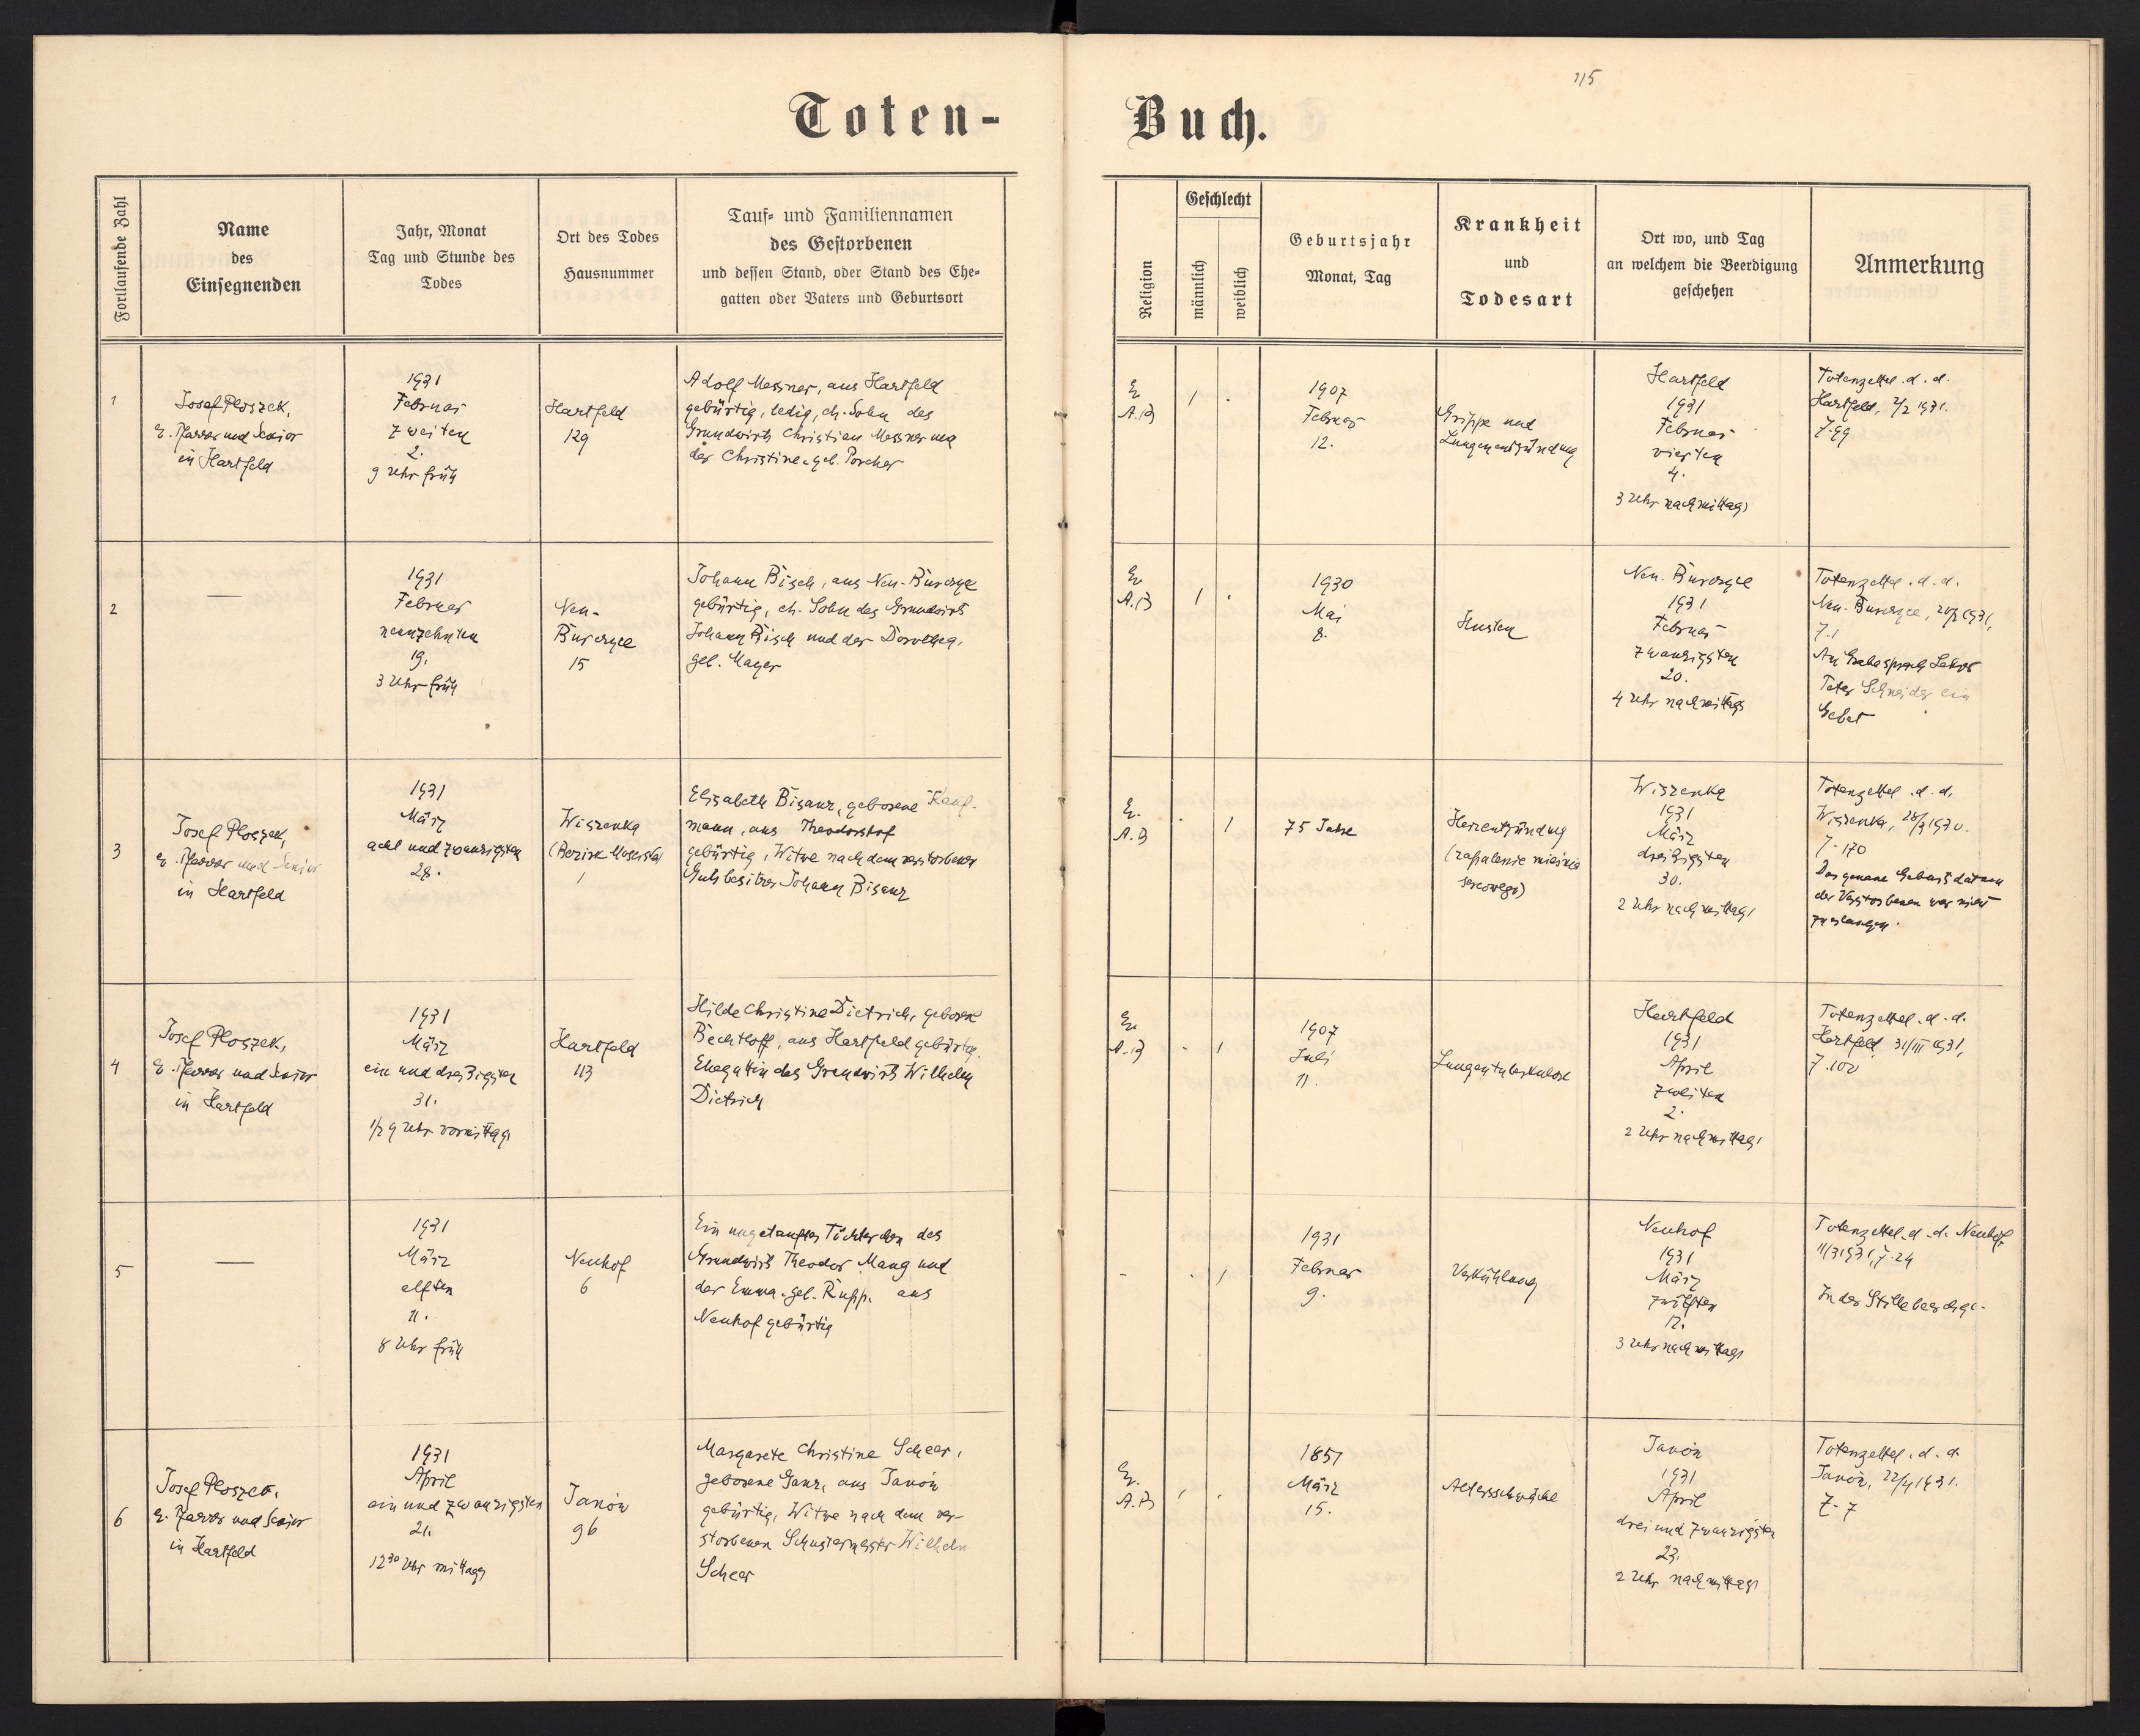 115
Toten-
Buch.
Fortlaufende Zahl
Name
des
Einsegnenden
Jahr, Monat
Tag und Stunde des
Todes
Ort des Todes
Hausnummer
Tauf- und Familiennamen
des Gestorbenen
und dessen Stand, oder Stand des Ehe-
gatten oder Vaters und Geburtsort
Religion
Geschlecht
männlich
weiblich
Geburtsjahr
Monat, Tag
Krankheit
und
Todesart
Ort wo, und Tag
an welchem die Beerdigung
geschehen
Anmerkung
1
Josef Ploszek,
e. Pfarrer und Senior
in Hartfeld
1931
Februar
zweiten
2.
9 Uhr früh
Hartfeld
129
Adolf Messner, aus Hartfeld
gebürtig, ledig, eh. Sohn des
Grundwirts Christian Messner und
der Christine geb. Porcher
Ev.
A.B.
1
1907
Februar
12.
Grippe und
Lungenentzündung
Hartfeld
1931
Februar
vierten
4.
3 Uhr nachmittags
Totenzettel d. d.
Hartfeld, 2/2 1931.
Z. 99
2
—
1931
Februar
neunzehnten
19.
3 Uhr früh
Neu-
Burczyce
15
Johann Bisch, aus Neu-Burczyce
gebürtig, eh. Sohn des Grundwirts
Johann Bisch und der Dorothea,
geb. Mayer
Ev.
A.B.
1
1930
Mai
8.
Husten
Neu-Burczyce
1931
Februar
zwanzigsten
20.
4 Uhr nachmittags
Totenzettel d. d.
Neu-Burczyce, 20/2 1931,
Z. 1
Am Grabe sprach Lehrer
Peter Schneider ein
Gebet
3
Josef Ploszek,
e. Pfarrer und Senior
in Hartfeld
1931
März
acht und zwanzigsten
28.
Wiszenka
(Bezirk Mosciska)
1
Elisabeth Bisanz, geborene Kauf-
mann, aus Theodorshof
gebürtig, Witwe nach dem verstorbenen
Gutsbesitzer Johann Bisanz
Ev.
A.B.
1
75 Jahre
Herzentzündung
(zapalenie mięśnia
sercowego)
Wiszenka
1931
März
dreißigsten
30.
2 Uhr nachmittags
Totenzettel d. d.
Wiszenka, 28/3 1930.
Z. 170
Das genaue Geburtsdatum
der Verstorbenen war nicht
zu erlangen.
4
Josef Ploszek,
e. Pfarrer und Senior
in Hartfeld
1931
März
ein und dreißigsten
31.
1/2 9 Uhr vormittags
Hartfeld
113
Hilde Christine Dietrich, geborene
Bechthoff, aus Hartfeld gebürtig,
Ehegattin des Grundwirts Wilhelm
Dietrich
Ev.
A.B.
1
1907
Juli
11.
Lungentuberkulose
Hartfeld
1931
April
zweiten
2.
2 Uhr nachmittags
Totenzettel d. d.
Hartfeld, 31/III 1931,
Z. 100
5
—
1931
März
elften
11.
8 Uhr früh
Neuhof
6
Ein ungetauftes Töchterchen des
Grundwirts Theodor Mang und
der Emma geb. Rupp, aus
Neuhof gebürtig
-
1
1931
Februar
9.
Verkühlung
Neuhof
1931
März
zwölften
12.
3 Uhr nachmittags
Totenzettel d. d. Neuhof
11/3 1931, Z. 24
In der Stille beerdigt.
6
Josef Ploszek,
e. Pfarrer und Senior
in Hartfeld
1931
April
ein und zwanzigsten
21.
12 30 Uhr mittags
Janów
96
Margarete Christine Scheer,
geborene Ganz, aus Janów
gebürtig, Witwe nach dem ver-
storbenen Schustermeister Wilhelm
Scheer
Ev.
A.B.
1851
März
15.
Altersschwäche
Janów
1931
April
drei und zwanzigsten
23.
2 Uhr nachmittags
Totenzettel d. d.
Janów, 22/4 1931.
Z. 7